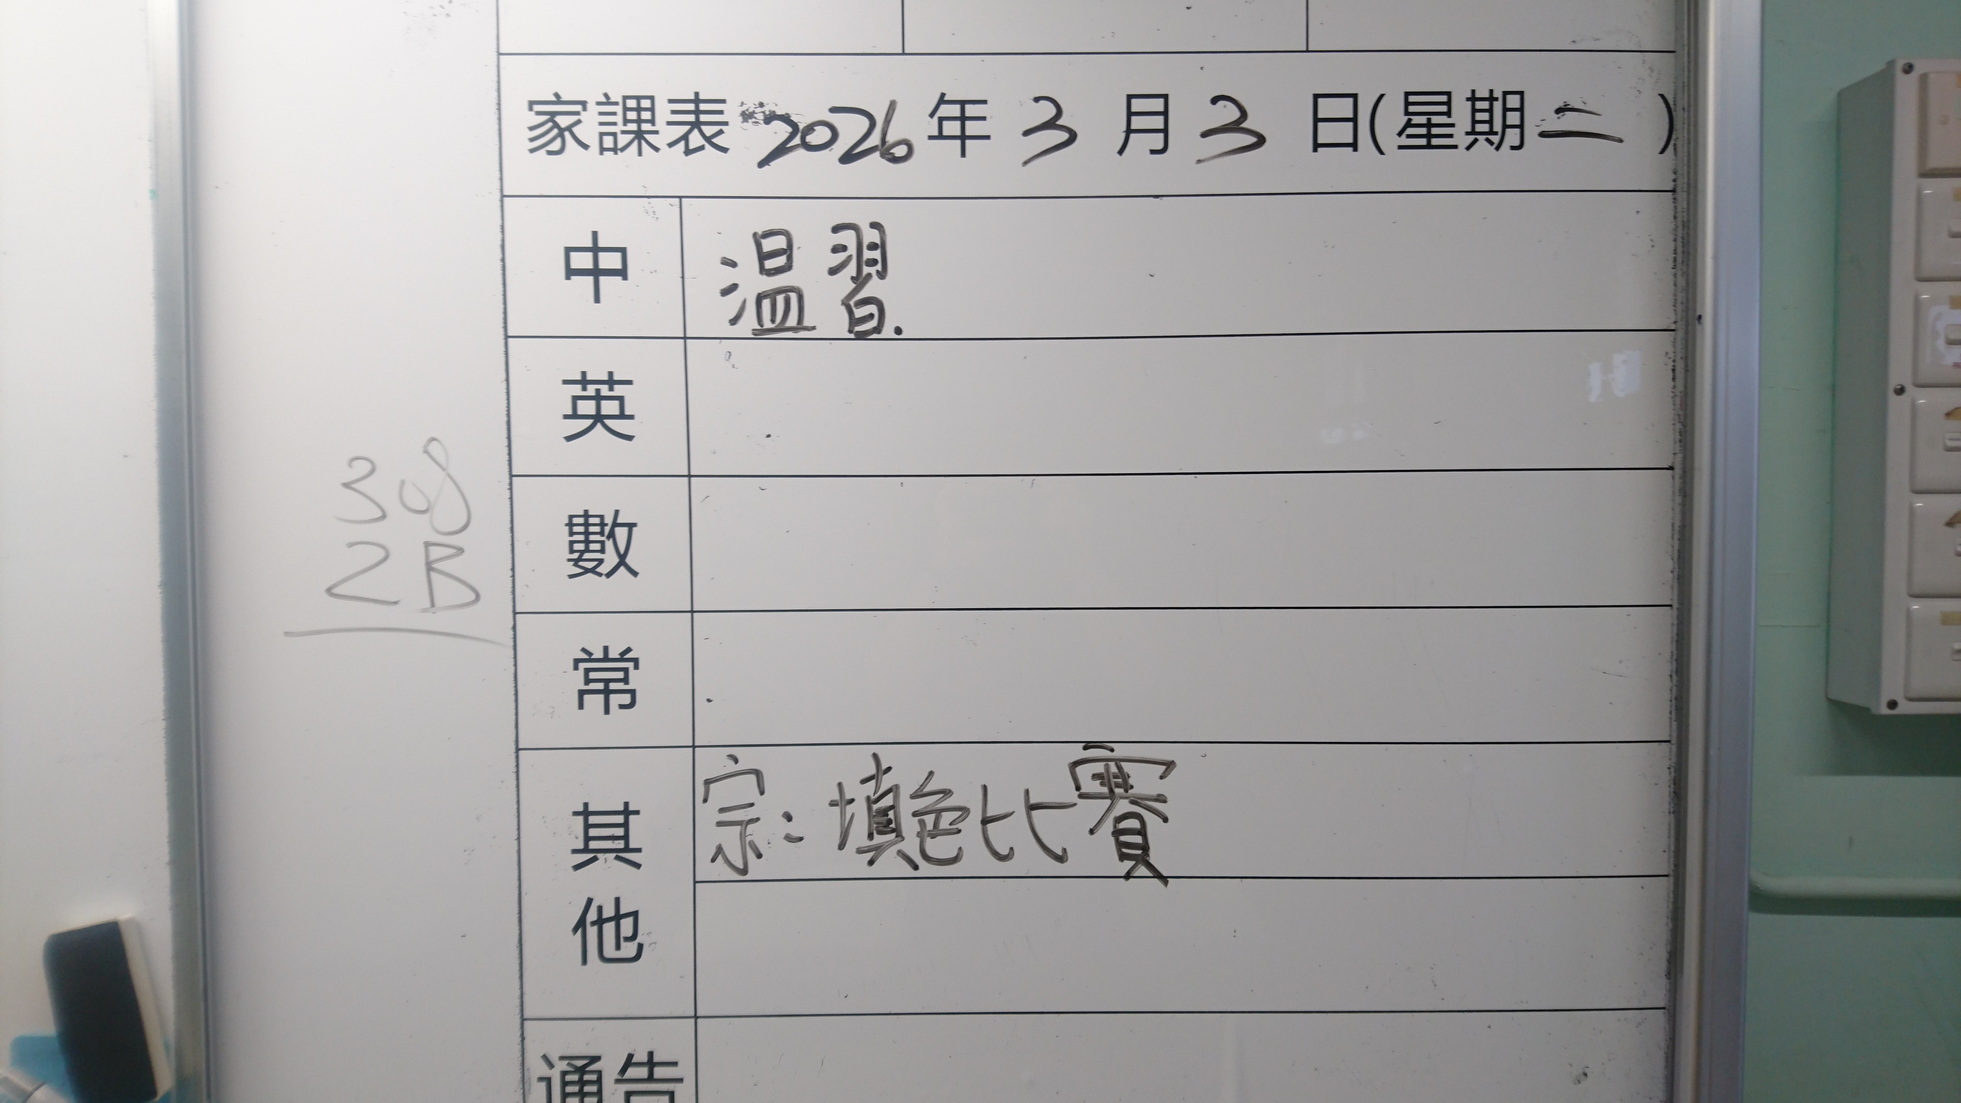 家課表 2026 年 3 月 3 日(星期二)
中 温習.
英
數
308
2B
常
其他 宗:填色比賽
通告